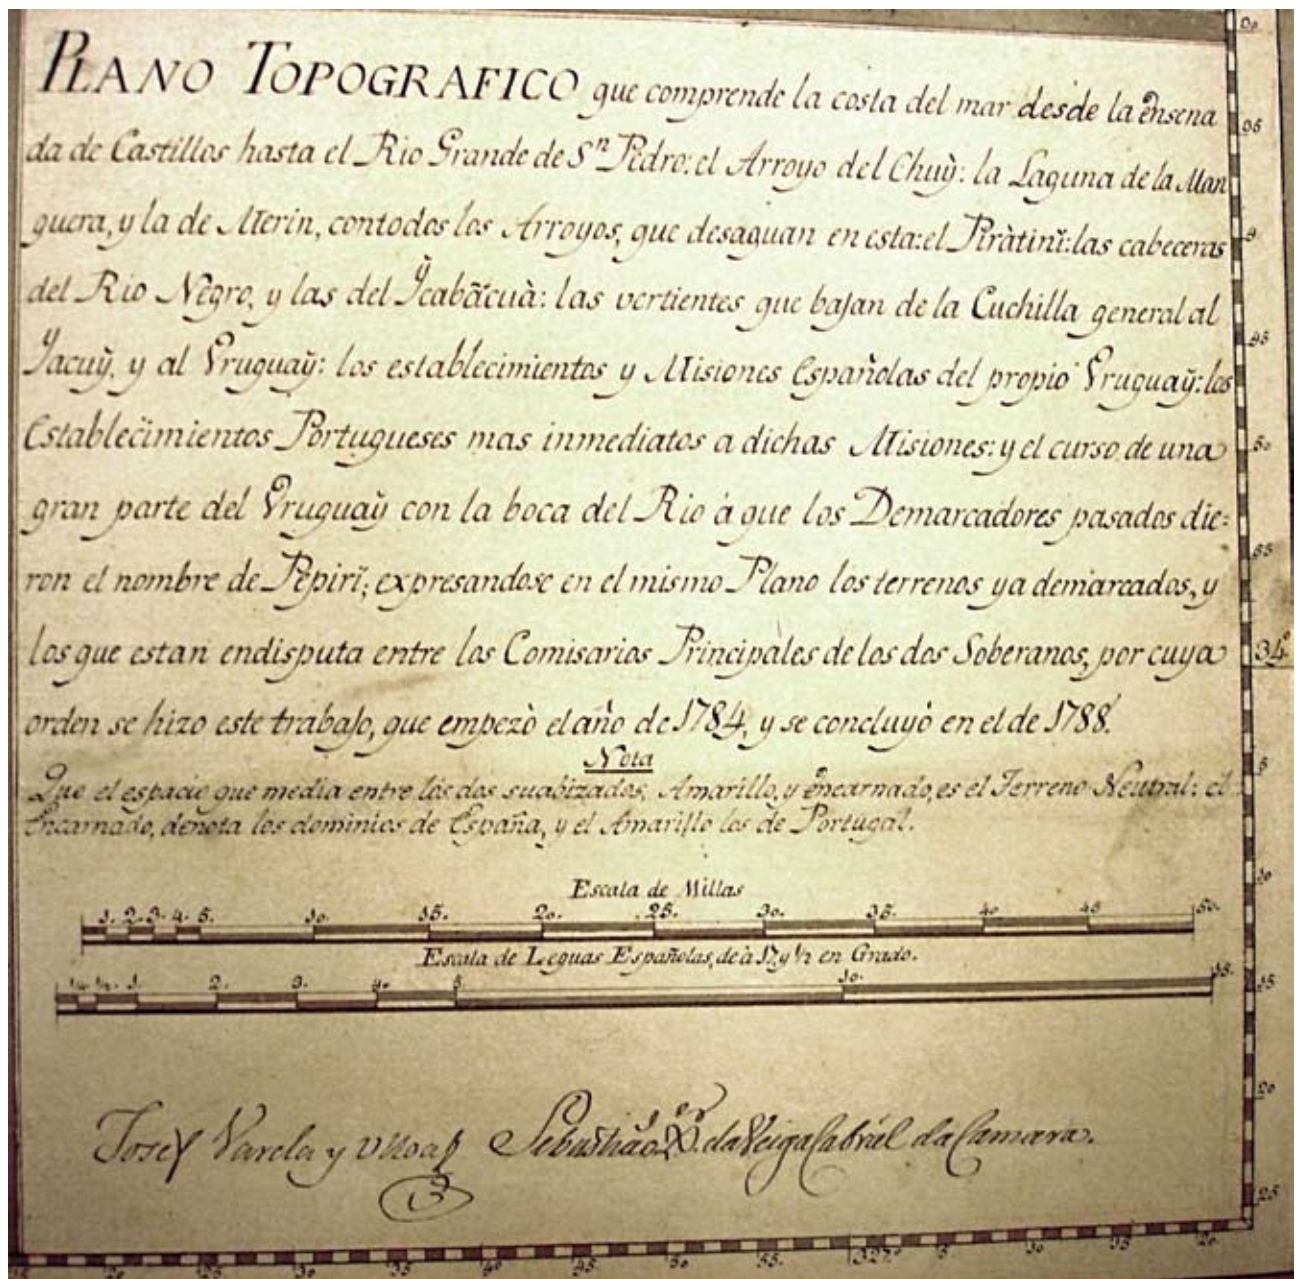 PLANO TOPOGRAFICO que comprende la costa del mar desde la Ensena
da de Castillos hasta el Rio Grande de Sn Pedro: el Arroyo del Chuỳ: la Laguna de la Man
guera, y la de Merin, con todos los Arroyos, que desaguan en esta: el Piràtinĩ: las cabeceras
del Rio Negro, y las del Ỳcabãcuà: las vertientes que bajan de la Cuchilla general al
Yacuỳ, y al Vruguaỳ: los establecimientos y Misiones Españolas del propio Vruguaỳ: los
Establecimientos Portugueses mas inmediatos a dichas Misiones: y el curso de una
gran parte del Vruguaỳ con la boca del Rio à que los Demarcadores pasados die=
ron el nombre de Pepirĩ; expresandose en el mismo Plano los terrenos ya demarcados, y
los que estan endisputa entre los Comisarios Principales de los dos Soberanos, por cuya
orden se hizo este trabajo, que empezò el año de 1784, y se concluyò en el de 1788.
Nota
Que el espacio que media entre los dos suabizados, Amarillo, y Encarnado, es el Terreno Neutral: el
Encarnado, denota los dominios de España, y el Amarillo los de Portugal.
Escala de Millas
1. 2. 3. 4. 5. 10. 15. 20. 25. 30. 35. 40 45 50.
Escala de Leguas Españolas, de à 17 y 1/2 en Grado.
1/4 1/2 1. 2. 3. 4. 5. 10. 15.
Josef Varela y Ulloa Sebastião X.er da Veiga Cabral da Camara.
34°
20 25 30 35 40 45 50 55. 327° 5 10 15 20.